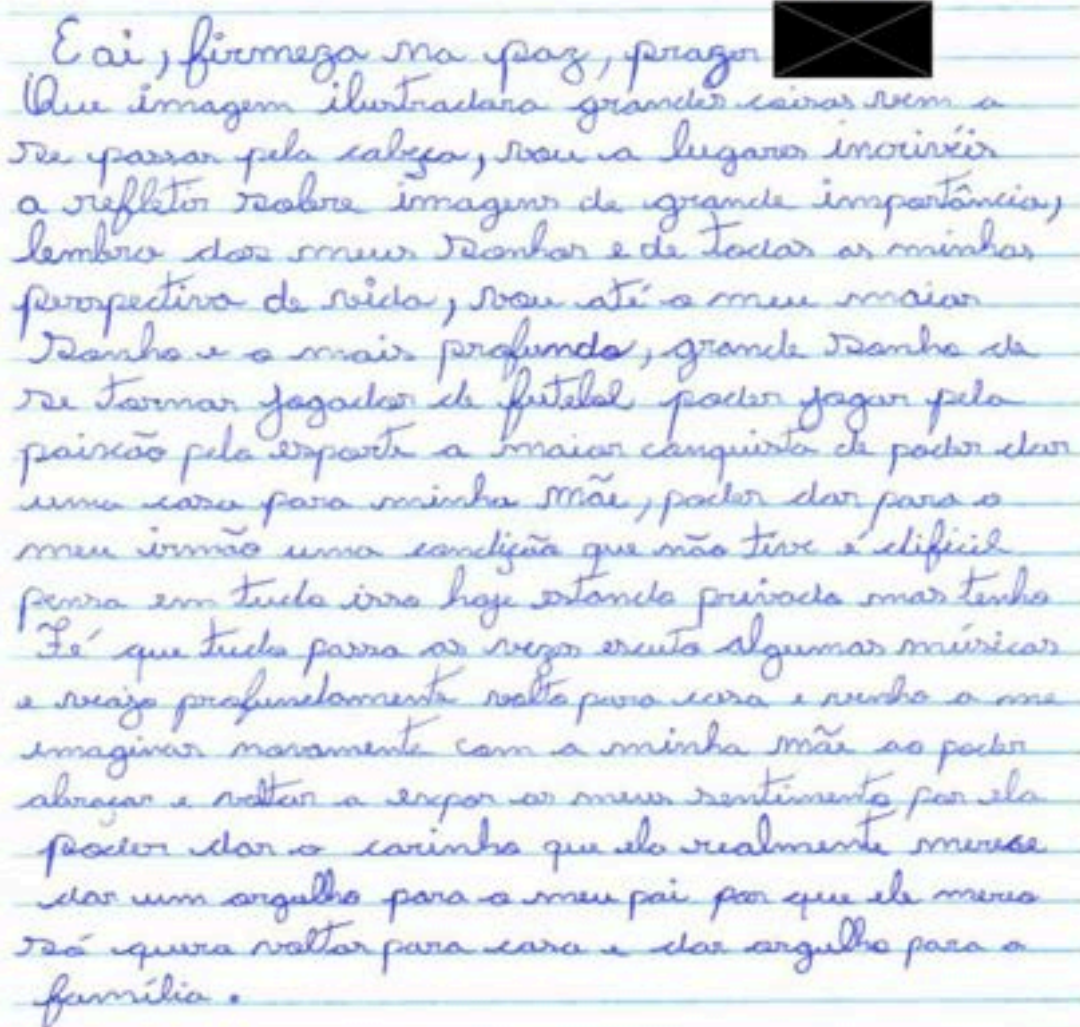 E ai, firmeza na paz, prazer
Que imagem ilustradara grandes coisas vem a
se passar pela cabeça, vou a lugares incrivéis
a refletir sobre imagens de grande importância,
lembro dos meus sonhos e de todas as minhas
perspectiva de vida, vou até o meu maior
sonho e o mais profundo, grande sonho de
se tornar jogador de futebol poder jogar pela
paixão pelo esporte a maior conquista de poder dar
uma casa para minha mãe, poder dar para o
meu irmão uma condição que não tive é dificil
pensa em tudo isso hoje estando privado mas tenho
Fé que tudo passa as vezes escuto algumas músicas
e viajo profundamente volto para casa e venho a me
imaginar novamente com a minha mãe ao poder
abraçar e voltar a expor os meus sentimento por ela
poder dar o carinho que ela realmente merece
dar um orgulho para o meu pai por que ele merece
só quero voltar para casa e dar orgulho para a
família.